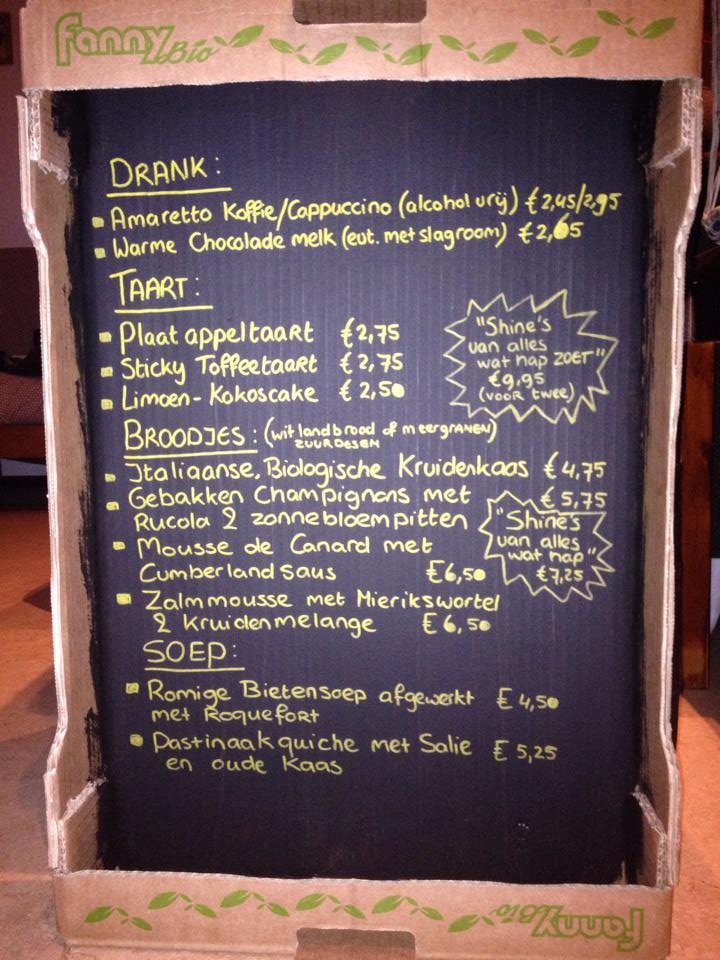 Fanny Bio
DRANK:
Amaretto Koffie/Cappuccino (alcohol vrij) € 2,45/2,95
Warme Chocolade melk (eut. met slagroom) € 2,65
TAART:
Plaat appeltaart € 2,75
Sticky Toffeetaart € 2,75
Limoen-Kokoscake € 2,50
"Shine's
van alles
wat hap ZOET"
€9,95
(VOOR twee)
BROODJES: (wit landbrood of meerGRANEN)
ZUURDESEM
Italiaanse, Biologische Kruidenkaas € 4,75
Gebakken Champignons met € 5,75
Rucola & zonnebloempitten
"Shine's
van alles
wat hap"
€7,25
Mousse de Canard met
Cumberland saus €6,50
Zalmmousse met Mierikswortel
& Kruidenmelange €6,50
SOEP:
Romige Bietensoep afgewerkt € 4,50
met Roquefort
Pastinaak quiche met Salie € 5,25
en oude Kaas
Fanny Bio